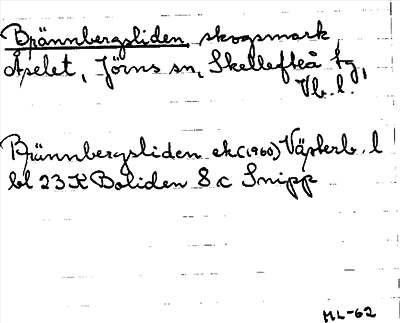 Brännbergsliden skogsmark
Åselet, Jörns sn, Skellefteå tg,
Vb. l.
Brännbergsliden ek (1960) Västerb. l
bl 23 K Boliden 8 c Snipp
ML-62